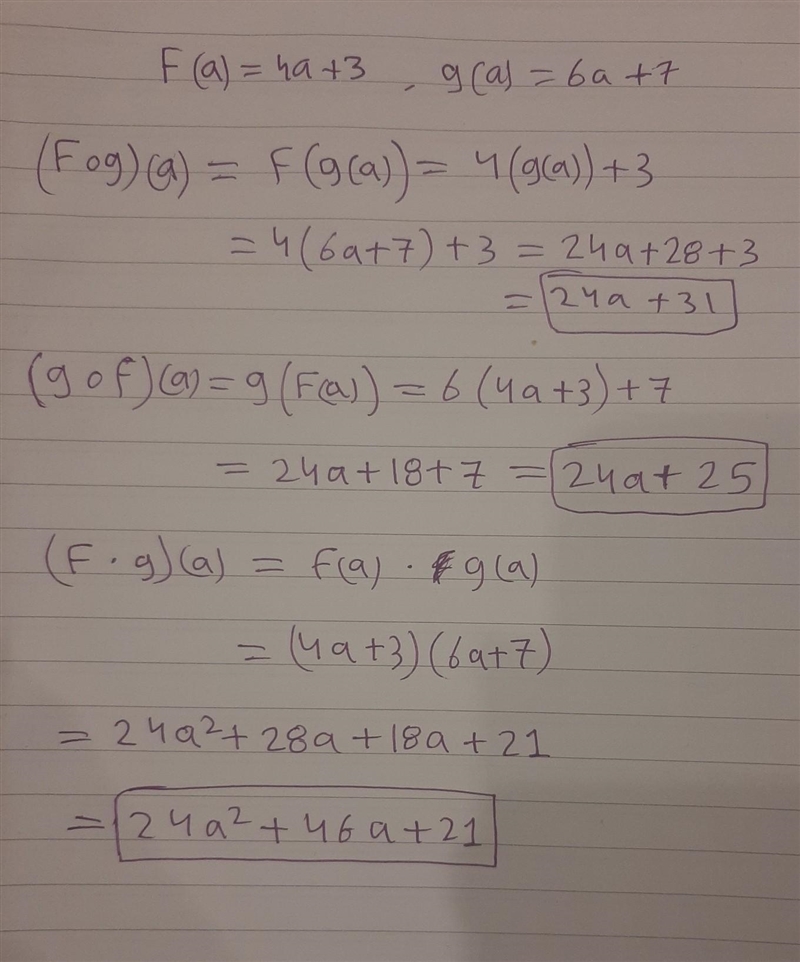 F(a) = 4a+3 , g(a) = 6a+7
(Fog)(a) = F(g(a)) = 4(g(a))+3
= 4(6a+7)+3 = 24a+28+3
= 24a+31
(gof)(a) = g(F(a)) = 6(4a+3)+7
= 24a+18+7 = 24a+25
(F·g)(a) = f(a) · g(a)
= (4a+3)(6a+7)
= 24a²+28a+18a+21
= 24a²+46a+21